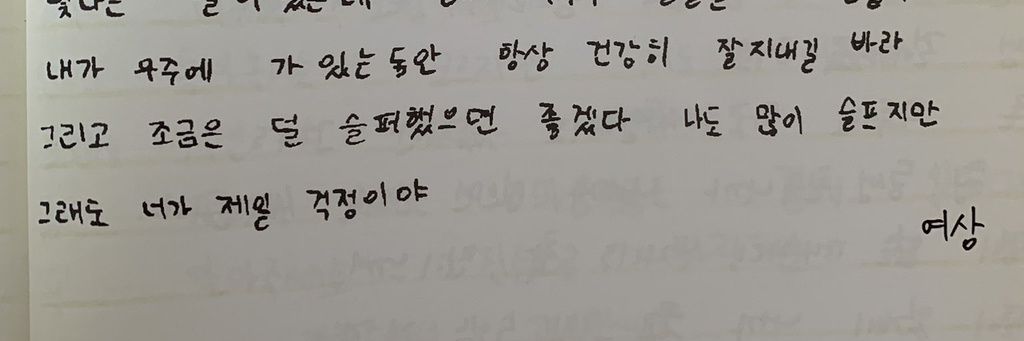 내가 우주에 가 있는 동안 항상 건강히 잘지내길 바라
그리고 조금은 덜 슬퍼했으면 좋겠다 나도 많이 슬프지만
그래도 너가 제일 걱정이야
여상